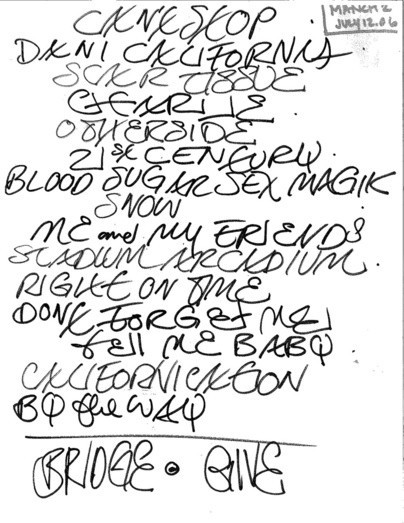 CAN'T STOP
MANCH 2
JULY 12.06
DANI CALIFORNIA
SCAR TISSUE
CHARLIE
OTHERSIDE
21ST CENTURY
BLOOD SUGAR SEX MAGIK
SNOW
ME and MY FRIENDS
STADIUM ARCADIUM
RIGHT ON TIME
DONT FORGET ME
TELL ME BABY
CALIFORNICATION
BY the WAY
BRIDGE • GIVE